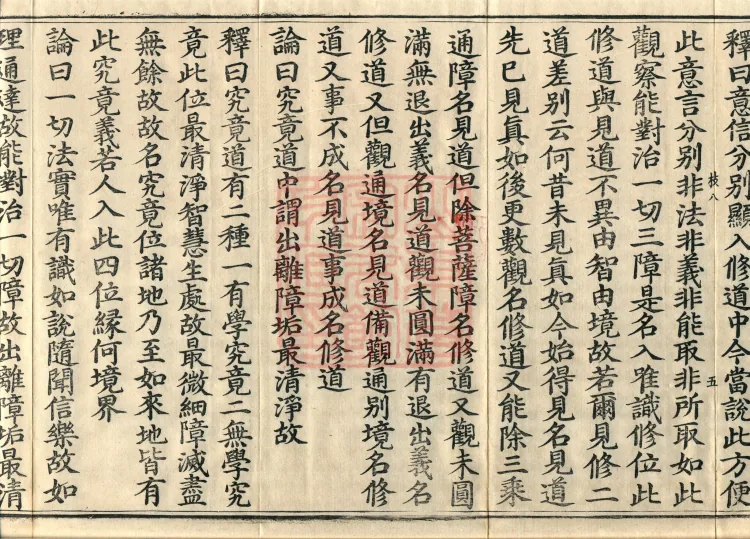 釋曰意信分別顯入修道中今當說此方便
此意言分別非法非義非能取非所取如此
枝八 五
觀察能對治一切三障是名入唯識修位此
修道與見道不異由智由境故若爾見修二
道差別云何昔未見真如今始得見名見道
先已見真如後更數觀名修道又能除三乘
通障名見道但除菩薩障名修道又觀未圓
滿無退出義名見道觀未圓滿有退出義名
修道又但觀通境名見道備觀通別境名修
道又事不成名見道事成名修道
論曰究竟道中謂出離障垢最清淨故
釋曰究竟道有二種一有學究竟二無學究
竟此位最清淨智慧生處故最微細障滅盡
無餘故故名究竟位諸地乃至如來地皆有
此究竟義若人入此四位緣何境界
論曰一切法實唯有識如說隨聞信樂故如
理通達故能對治一切障故出離障垢最清